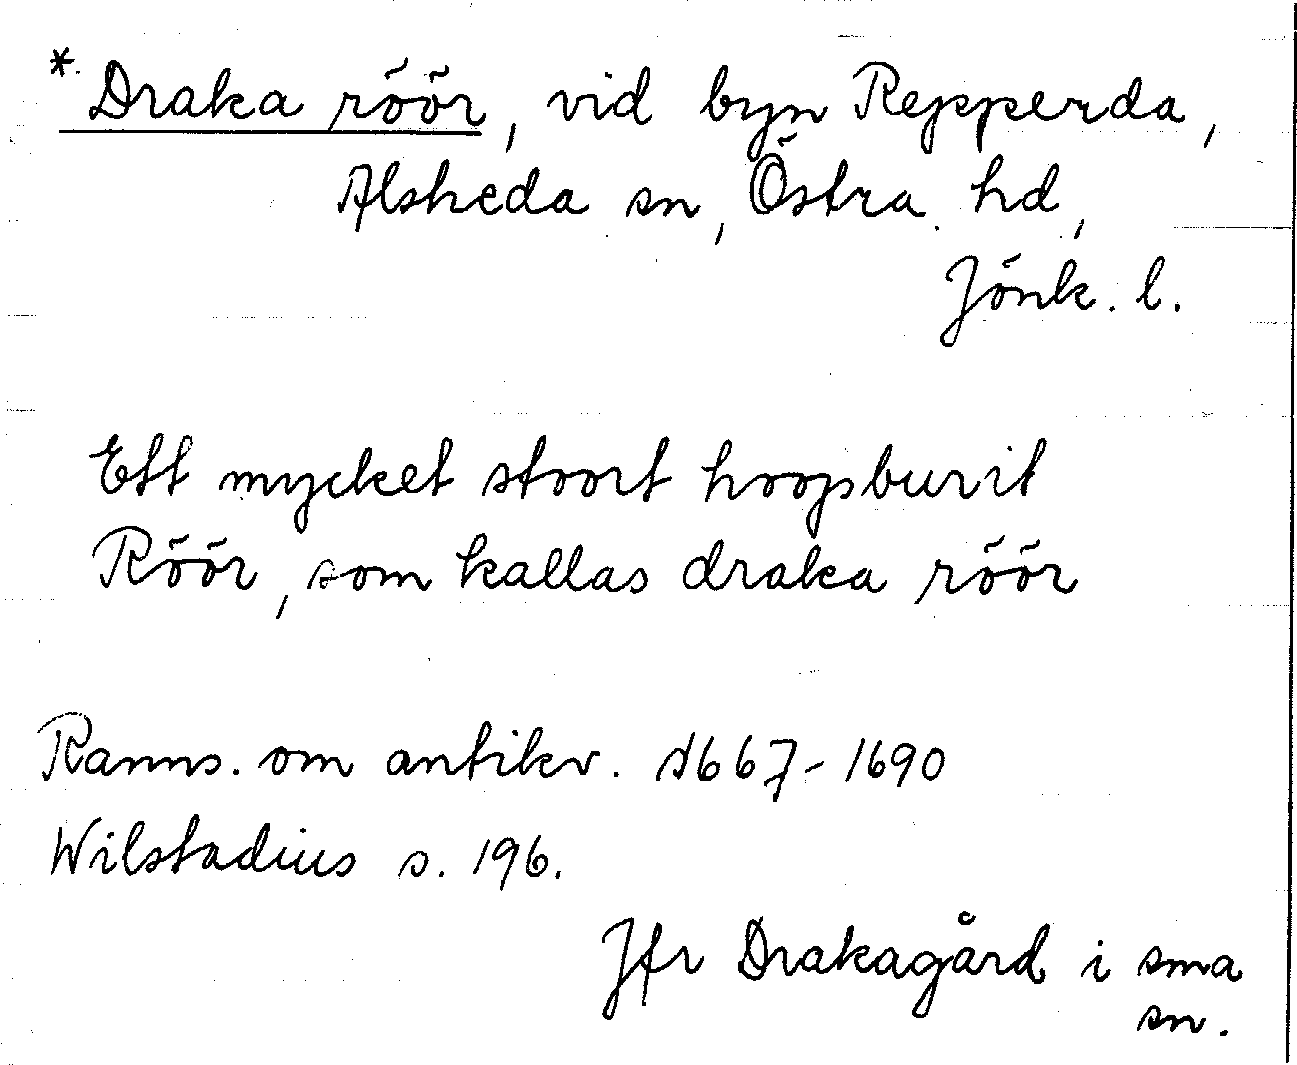 *Draka röör, vid byn Repperda,
Alsheda sn, Östra hd,
Jönk. l.
Ett mycket stoort hoopsburit
Röör, som kallas draka röör
Ranns. om antikv. 1667-1690
Wilstadius s. 196.
Jfr Drakagård i sma
sn.